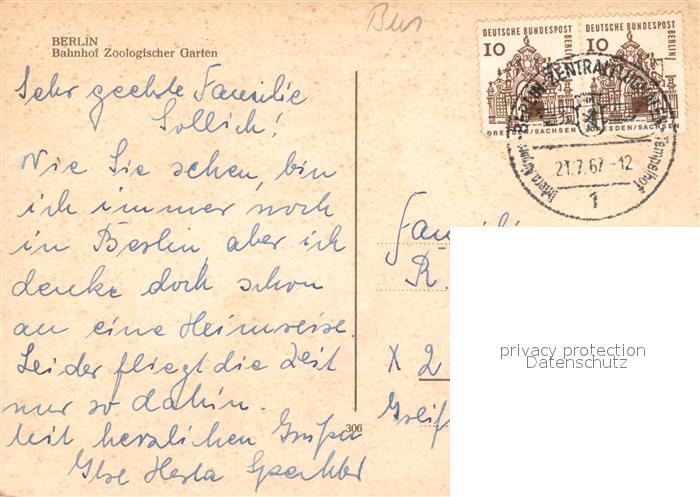 BERLIN
Bahnhof Zoologischer Garten
DEUTSCHE BUNDESPOST BERLIN
10
DRESDEN/SACHSEN
DEUTSCHE BUNDESPOST BERLIN
10
DRESDEN/SACHSEN
BERLIN ZENTRALFLUGHAFEN
Tempelhof
21.7.67-12
1
Sehr geehrte Familie
Sollich!
Wie Sie sehen, bin
ich immer noch
in Berlin, aber ich
denke doch schon
an eine Heimreise.
Leider fliegt die Zeit
nur so dahin.
Mit herzlichen Grüßen
Herta
306
Fam
R.
X 2
Greif
privacy protection
Datenschutz